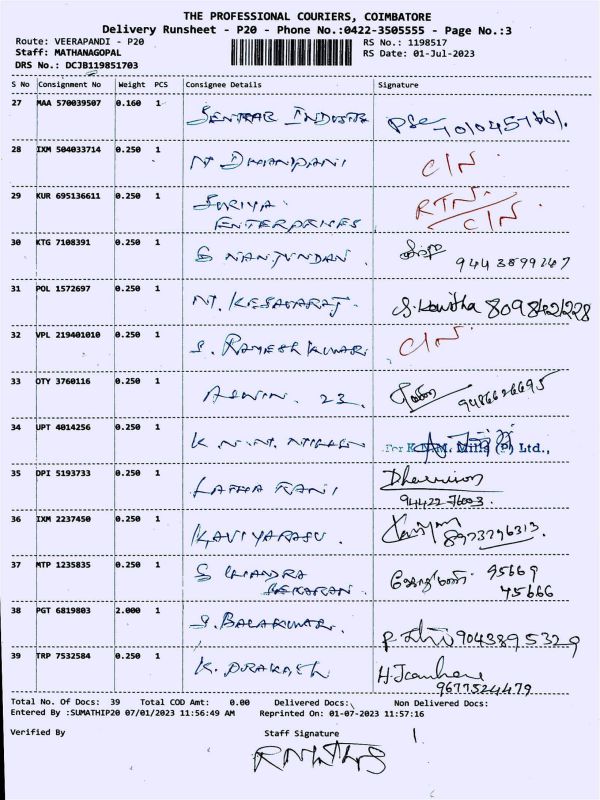 THE PROFESSIONAL COURIERS, COIMBATORE
Delivery Runsheet - P20 - Phone No.:0422-3505555 - Page No.:3
Route: VEERAPANDI - P20
RS No.: 1198517
Staff: MATHANAGOPAL
RS Date: 01-Jul-2023
DRS No.: DCJB119851703
S No Consignment No Weight PCS Consignee Details Signature
27 MAA 570039507 0.160 1
28 IXM 504033714 0.250 1 C/N
29 KUR 695136611 0.250 1 SURIYA RTN.
ENTERPRISES C/N
30 KTG 7108391 0.250 1 S NANJUNDAN.
31 POL 1572697 0.250 1
32 VPL 219401010 0.250 1 S. RAMESH KUMAR C/N.
33 OTY 3760116 0.250 1 ASWIN. 23. 9486626695
34 UPT 4014256 0.250 1 For K.N.M. Mills (P) Ltd.,
35 DPI 5193733 0.250 1 LATHA RANI
94422 76003.
36 IXM 2237450 0.250 1 KAVIYARASU. 8973796313
37 MTP 1235835 0.250 1 S CHANDRA 95669
SEKARAN. 45666
38 PGT 6819803 2.000 1 S. BALAKUMAR. 9043895329
39 TRP 7532584 0.250 1 K. PRAKASH
9677524479
Total No. Of Docs: 39 Total COD Amt: 0.00 Delivered Docs: Non Delivered Docs:
Entered By :SUMATHIP20 07/01/2023 11:56:49 AM Reprinted On: 01-07-2023 11:57:16
Verified By Staff Signature